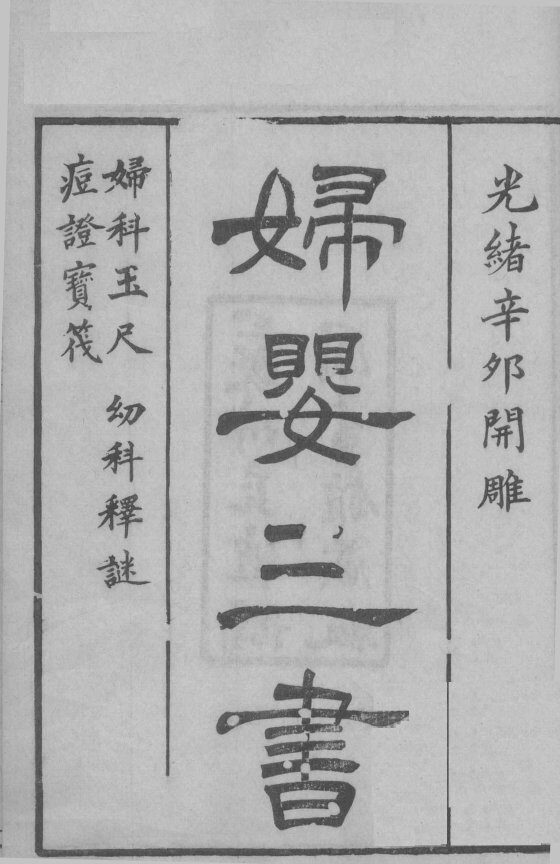 光緒辛夘開雕
婦嬰三書
婦科玉尺 幼科釋謎
痘證寶筏